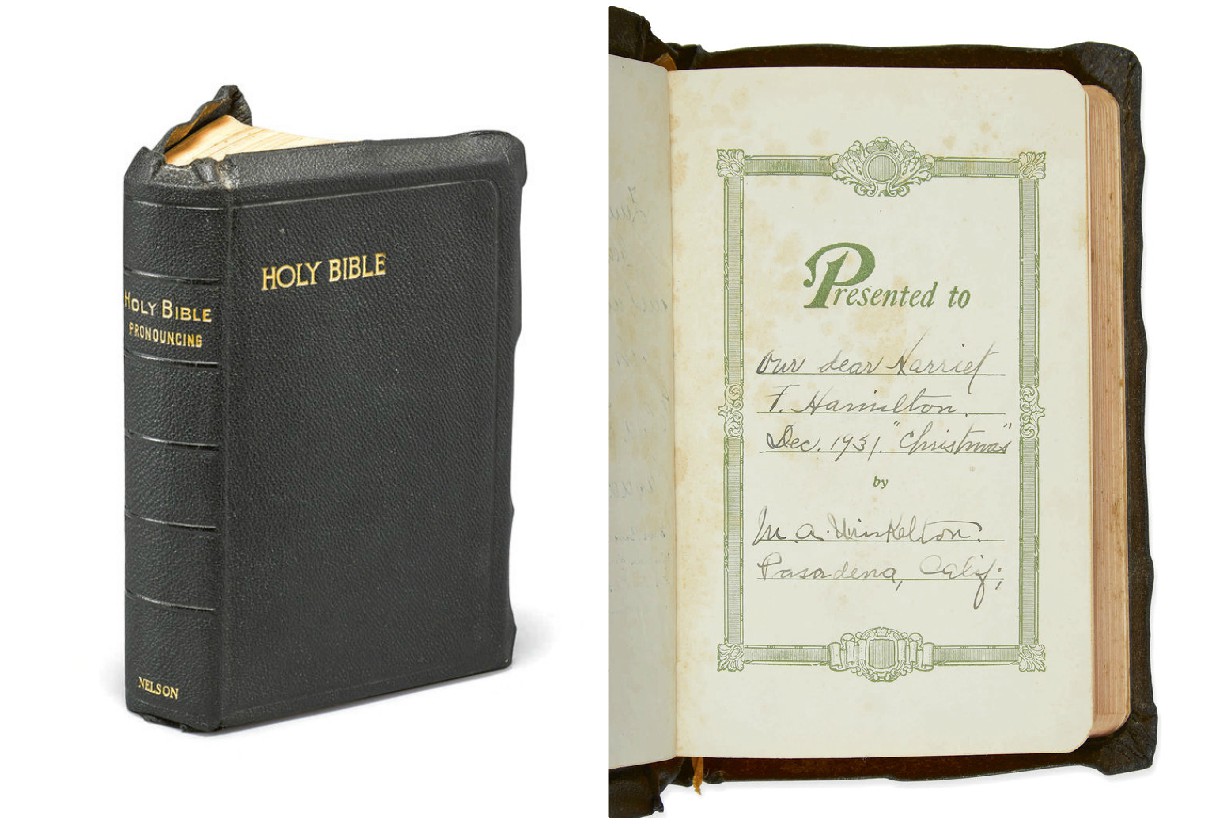 HOLY BIBLE
HOLY BIBLE
PRONOUNCING
NELSON
Presented to
Our dear Harriet
T. Hamilton.
Dec. 1931 "Christmas"
by
M. A.
Pasadena, Calif;